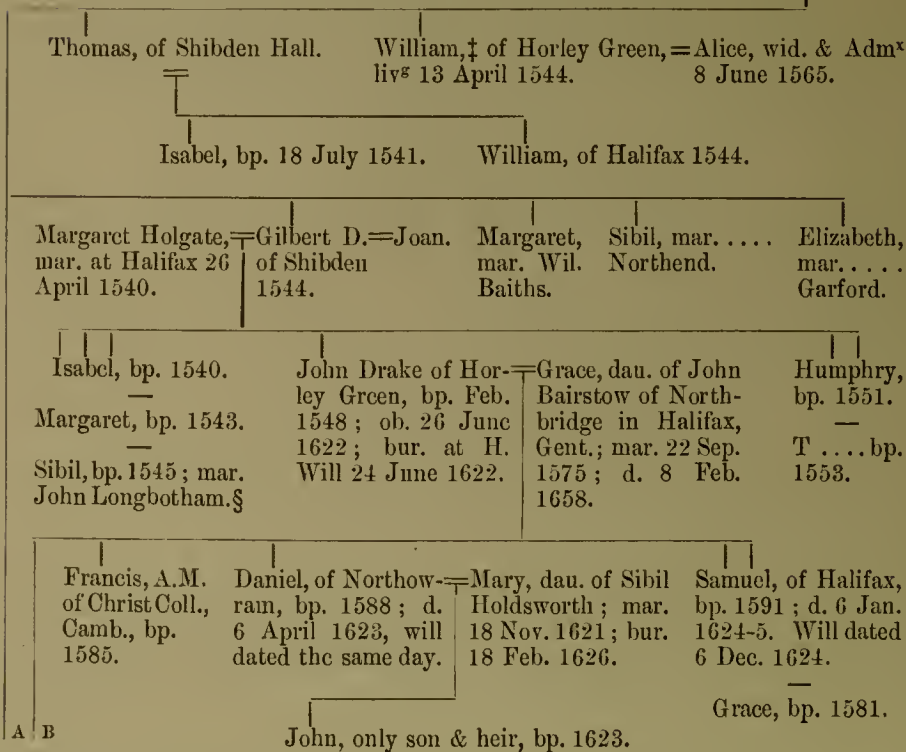 Thomas, of Shibden Hall.
William,‡ of Horley Green,=Alice, wid. & Admˣ
livᵍ 13 April 1544. 8 June 1565.
Isabel, bp. 18 July 1541.
William, of Halifax 1544.
Margaret Holgate,
mar. at Halifax 26
April 1540.
Gilbert D.=Joan.
of Shibden
1544.
Margaret,
mar. Wil.
Baiths.
Sibil, mar. ....
Northend.
Elizabeth,
mar. ....
Garford.
Isabel, bp. 1540.
—
Margaret, bp. 1543.
—
Sibil, bp. 1545; mar.
John Longbotham.§
John Drake of Hor-
ley Green, bp. Feb.
1548; ob. 26 June
1622; bur. at H.
Will 24 June 1622.
Grace, dau. of John
Bairstow of North-
bridge in Halifax,
Gent.; mar. 22 Sep.
1575; d. 8 Feb.
1658.
Humphry,
bp. 1551.
—
T .... bp.
1553.
Francis, A.M.
of Christ Coll.,
Camb., bp.
1585.
Daniel, of Northow-
ram, bp. 1588; d.
6 April 1623, will
dated the same day.
Mary, dau. of Sibil
Holdsworth; mar.
18 Nov. 1621; bur.
18 Feb. 1626.
Samuel, of Halifax,
bp. 1591; d. 6 Jan.
1624-5. Will dated
6 Dec. 1624.
—
Grace, bp. 1581.
A B
John, only son & heir, bp. 1623.